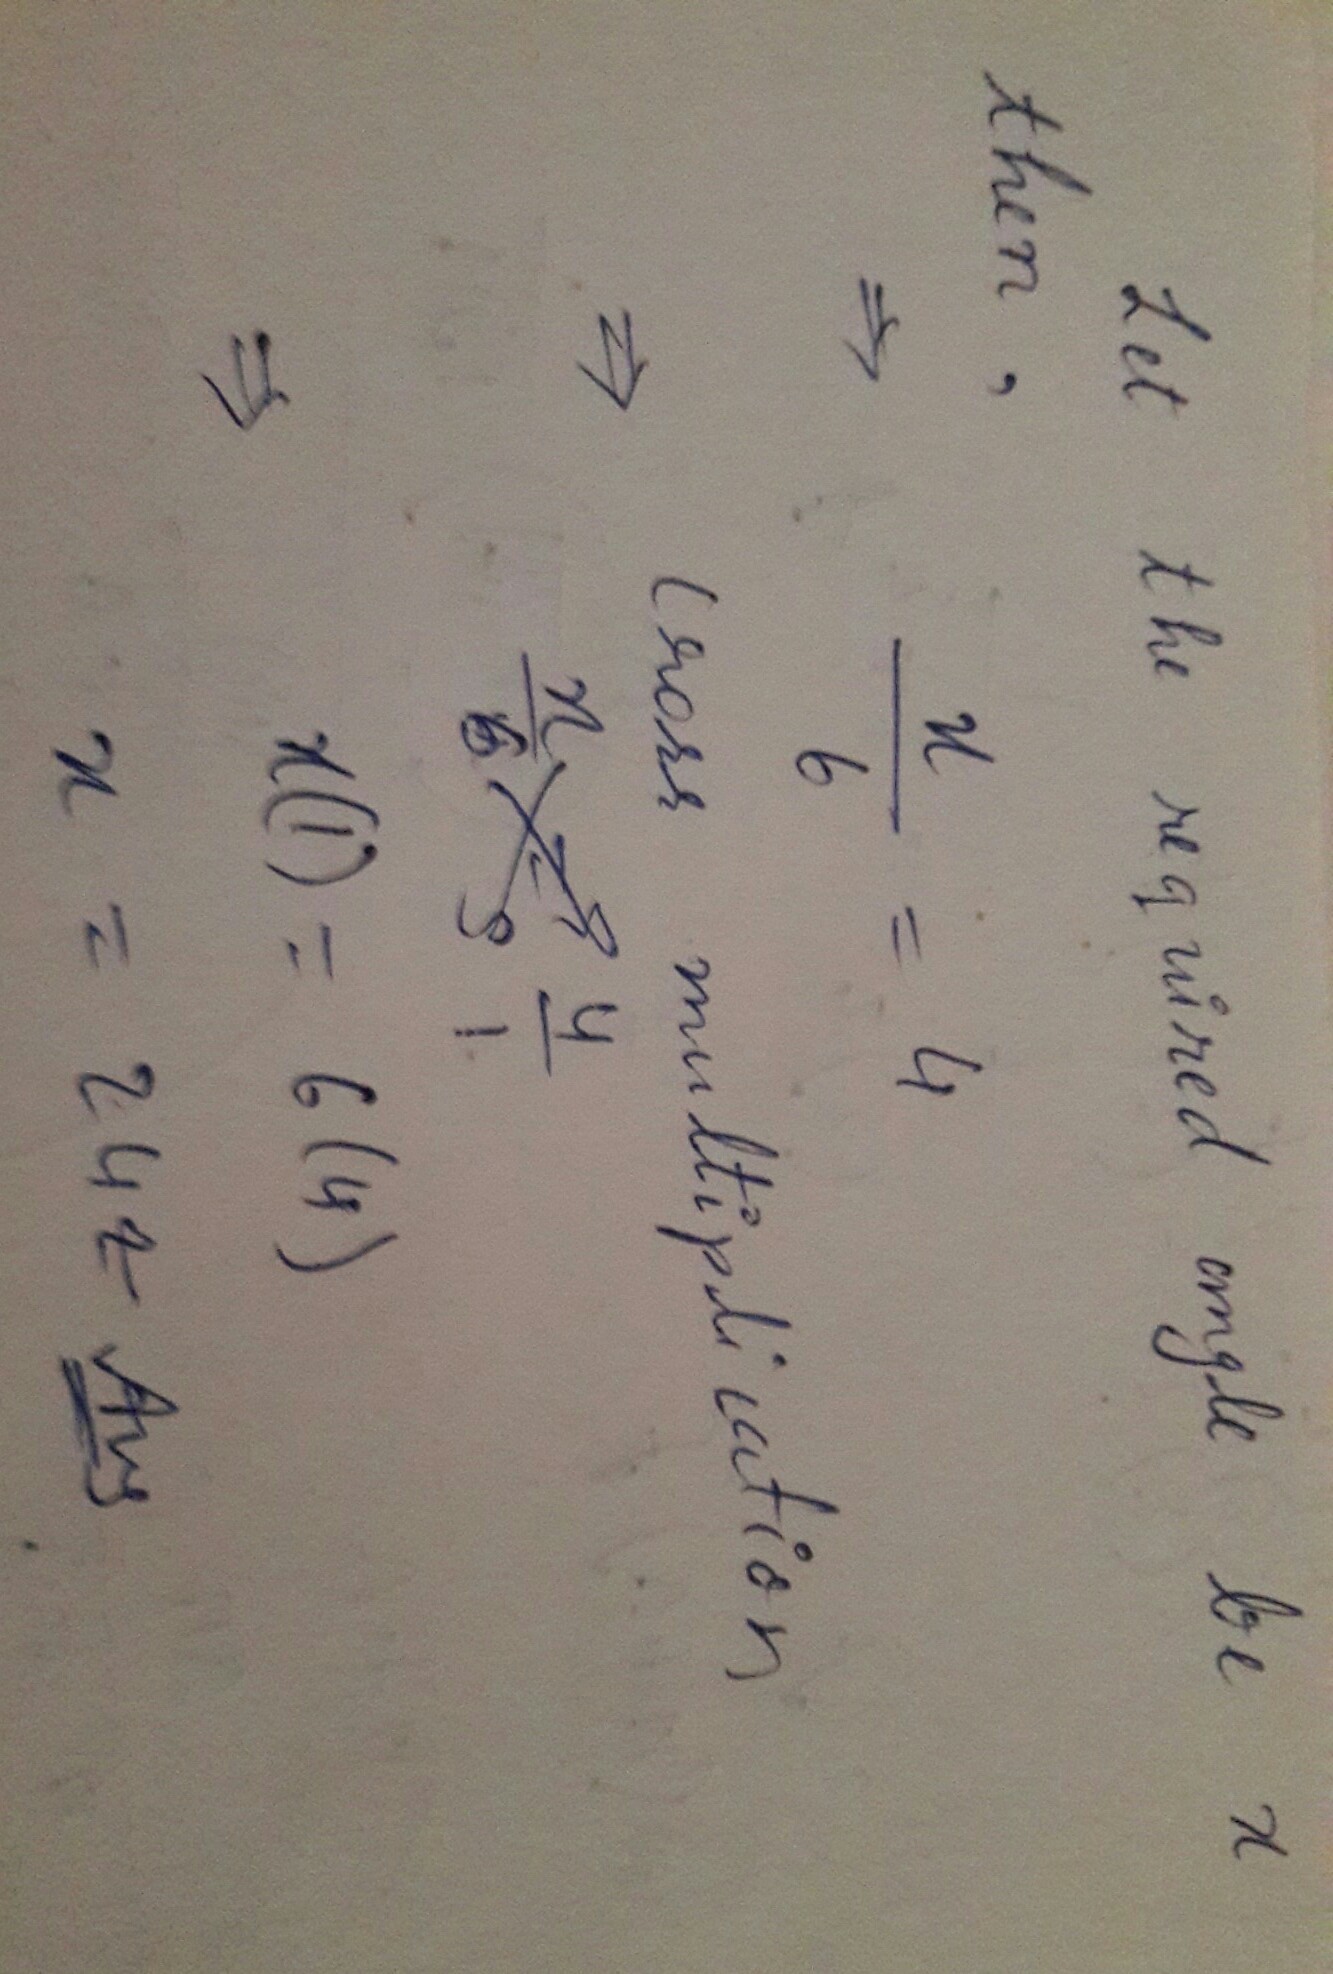 Let the required angle be x
then,
⇒ x/6 = 4
⇒ Cross multiplication
x/6 = 4/1
⇒ x(1) = 6(4)
x = 24 Ans